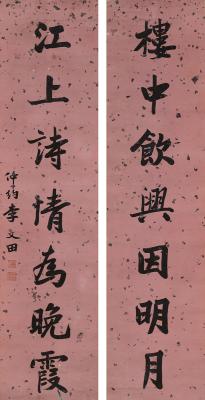 樓中飲興因明月
江上詩情為晚霞
仲約李文田